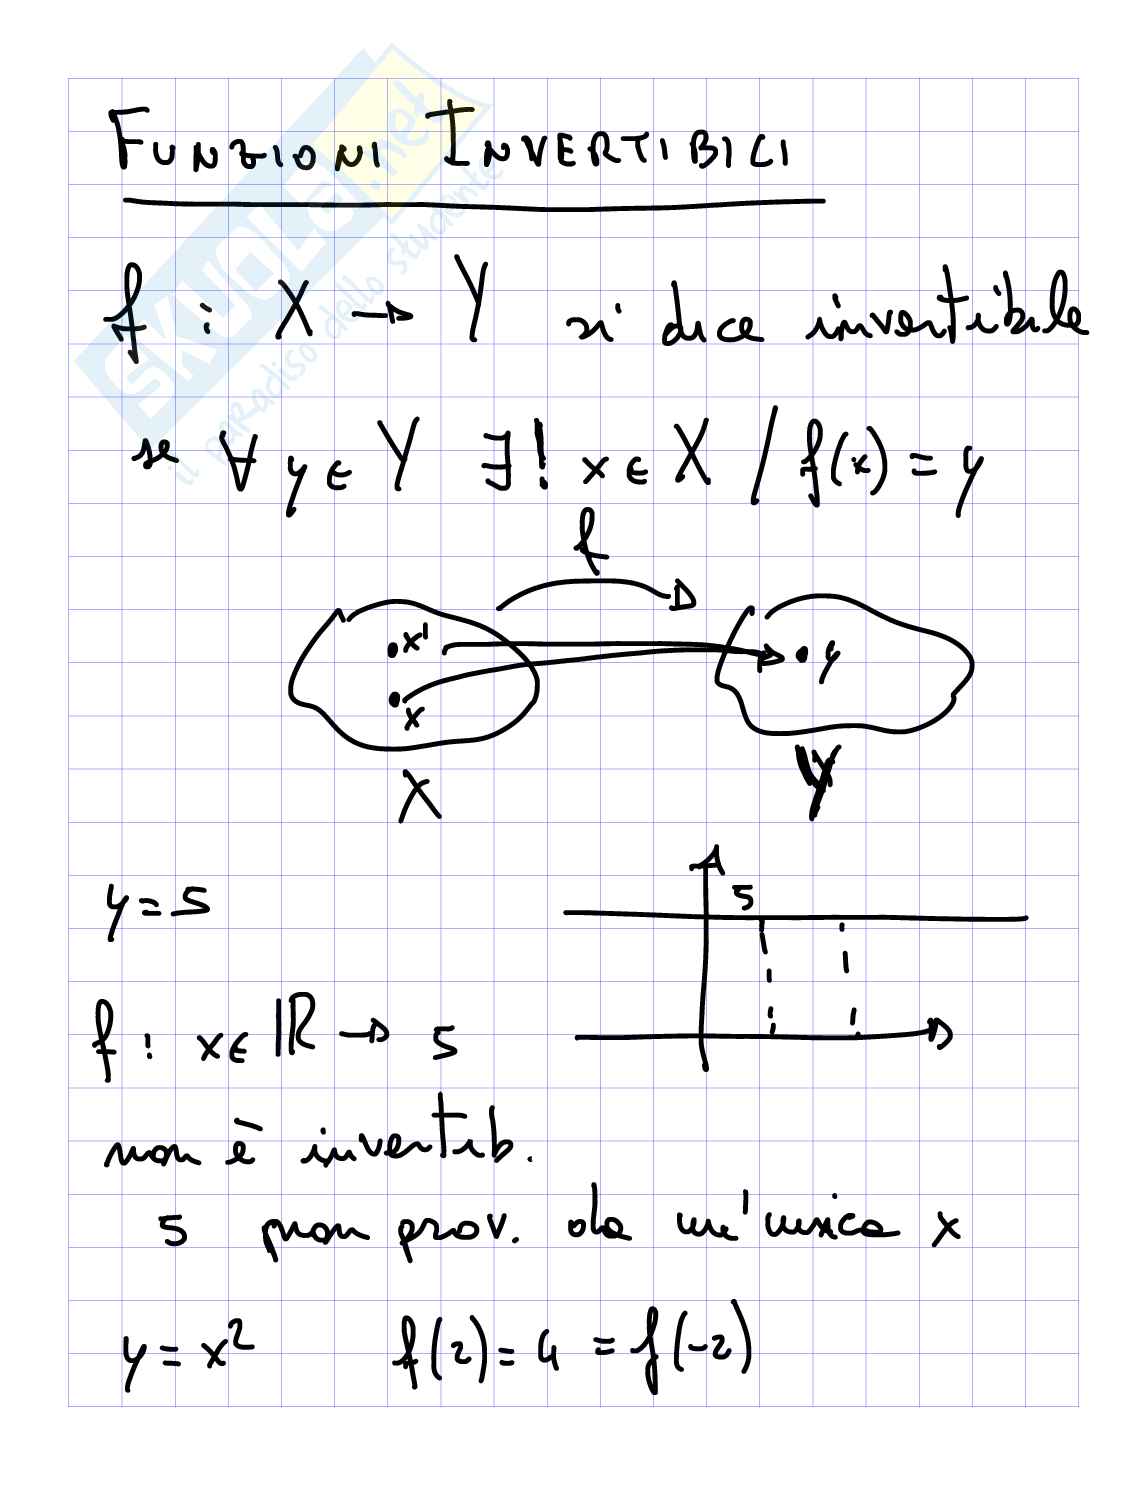 FUNZIONI INVERTIBILI
f : X → Y si dice invertibile
se ∀ y ∈ Y ∃! x ∈ X / f(x) = y
f
x'
y
x
X
Y
y = 5
5
f : x ∈ ℝ → 5
non è invertib.
5 non prov. da un'unica x
y = x²   f(2) = 4 = f(-2)
SKUOLA.net
il paradiso dello studente